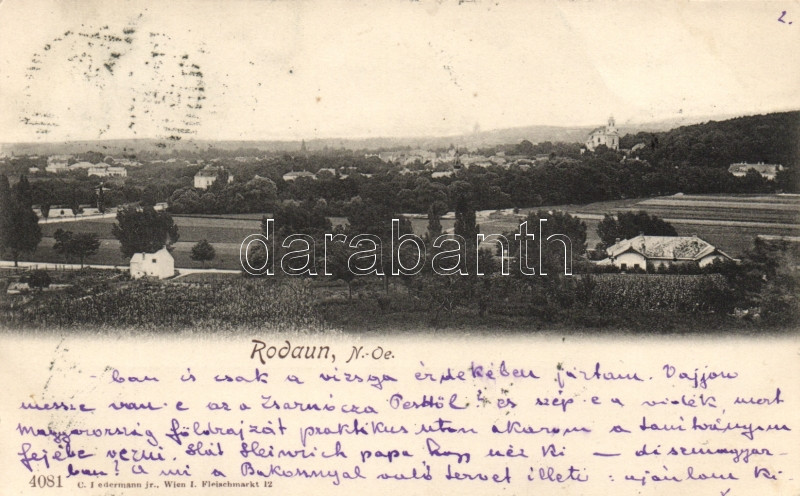 2.
darabanth
Rodaun, N.-Oe.
-ban is csak a vizsga érdekében jártam. Vajjon
messze van-e az a Zsarnócza Pesttől? és szép-e a vidék, mert
Magyarország földrajzát praktikus uton akarom a tanítványaim
fejébe verni. Hát Heinrich papa hogy néz ki — díszmagyar-
ban? A mi a Bakonnyal való tervet illeti: ajánlom ki-
4081 C. Ledermann jr., Wien I. Fleischmarkt 12